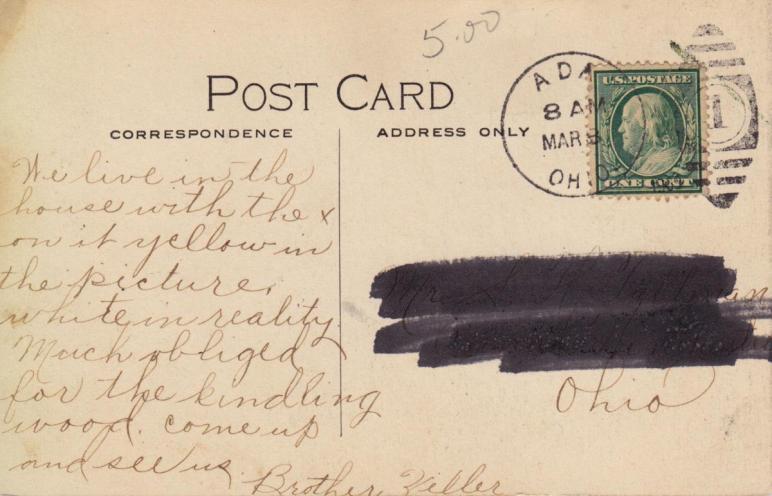 5.00
POST CARD
CORRESPONDENCE
ADDRESS ONLY
ADA
8 AM
MAR 8
OHIO
U.S. POSTAGE
ONE CENT
1
We live in the
house with the x
on it yellow in
the picture,
white in reality.
Much obliged
for the kindling
wood. come up
and see us
Brother
Ohio